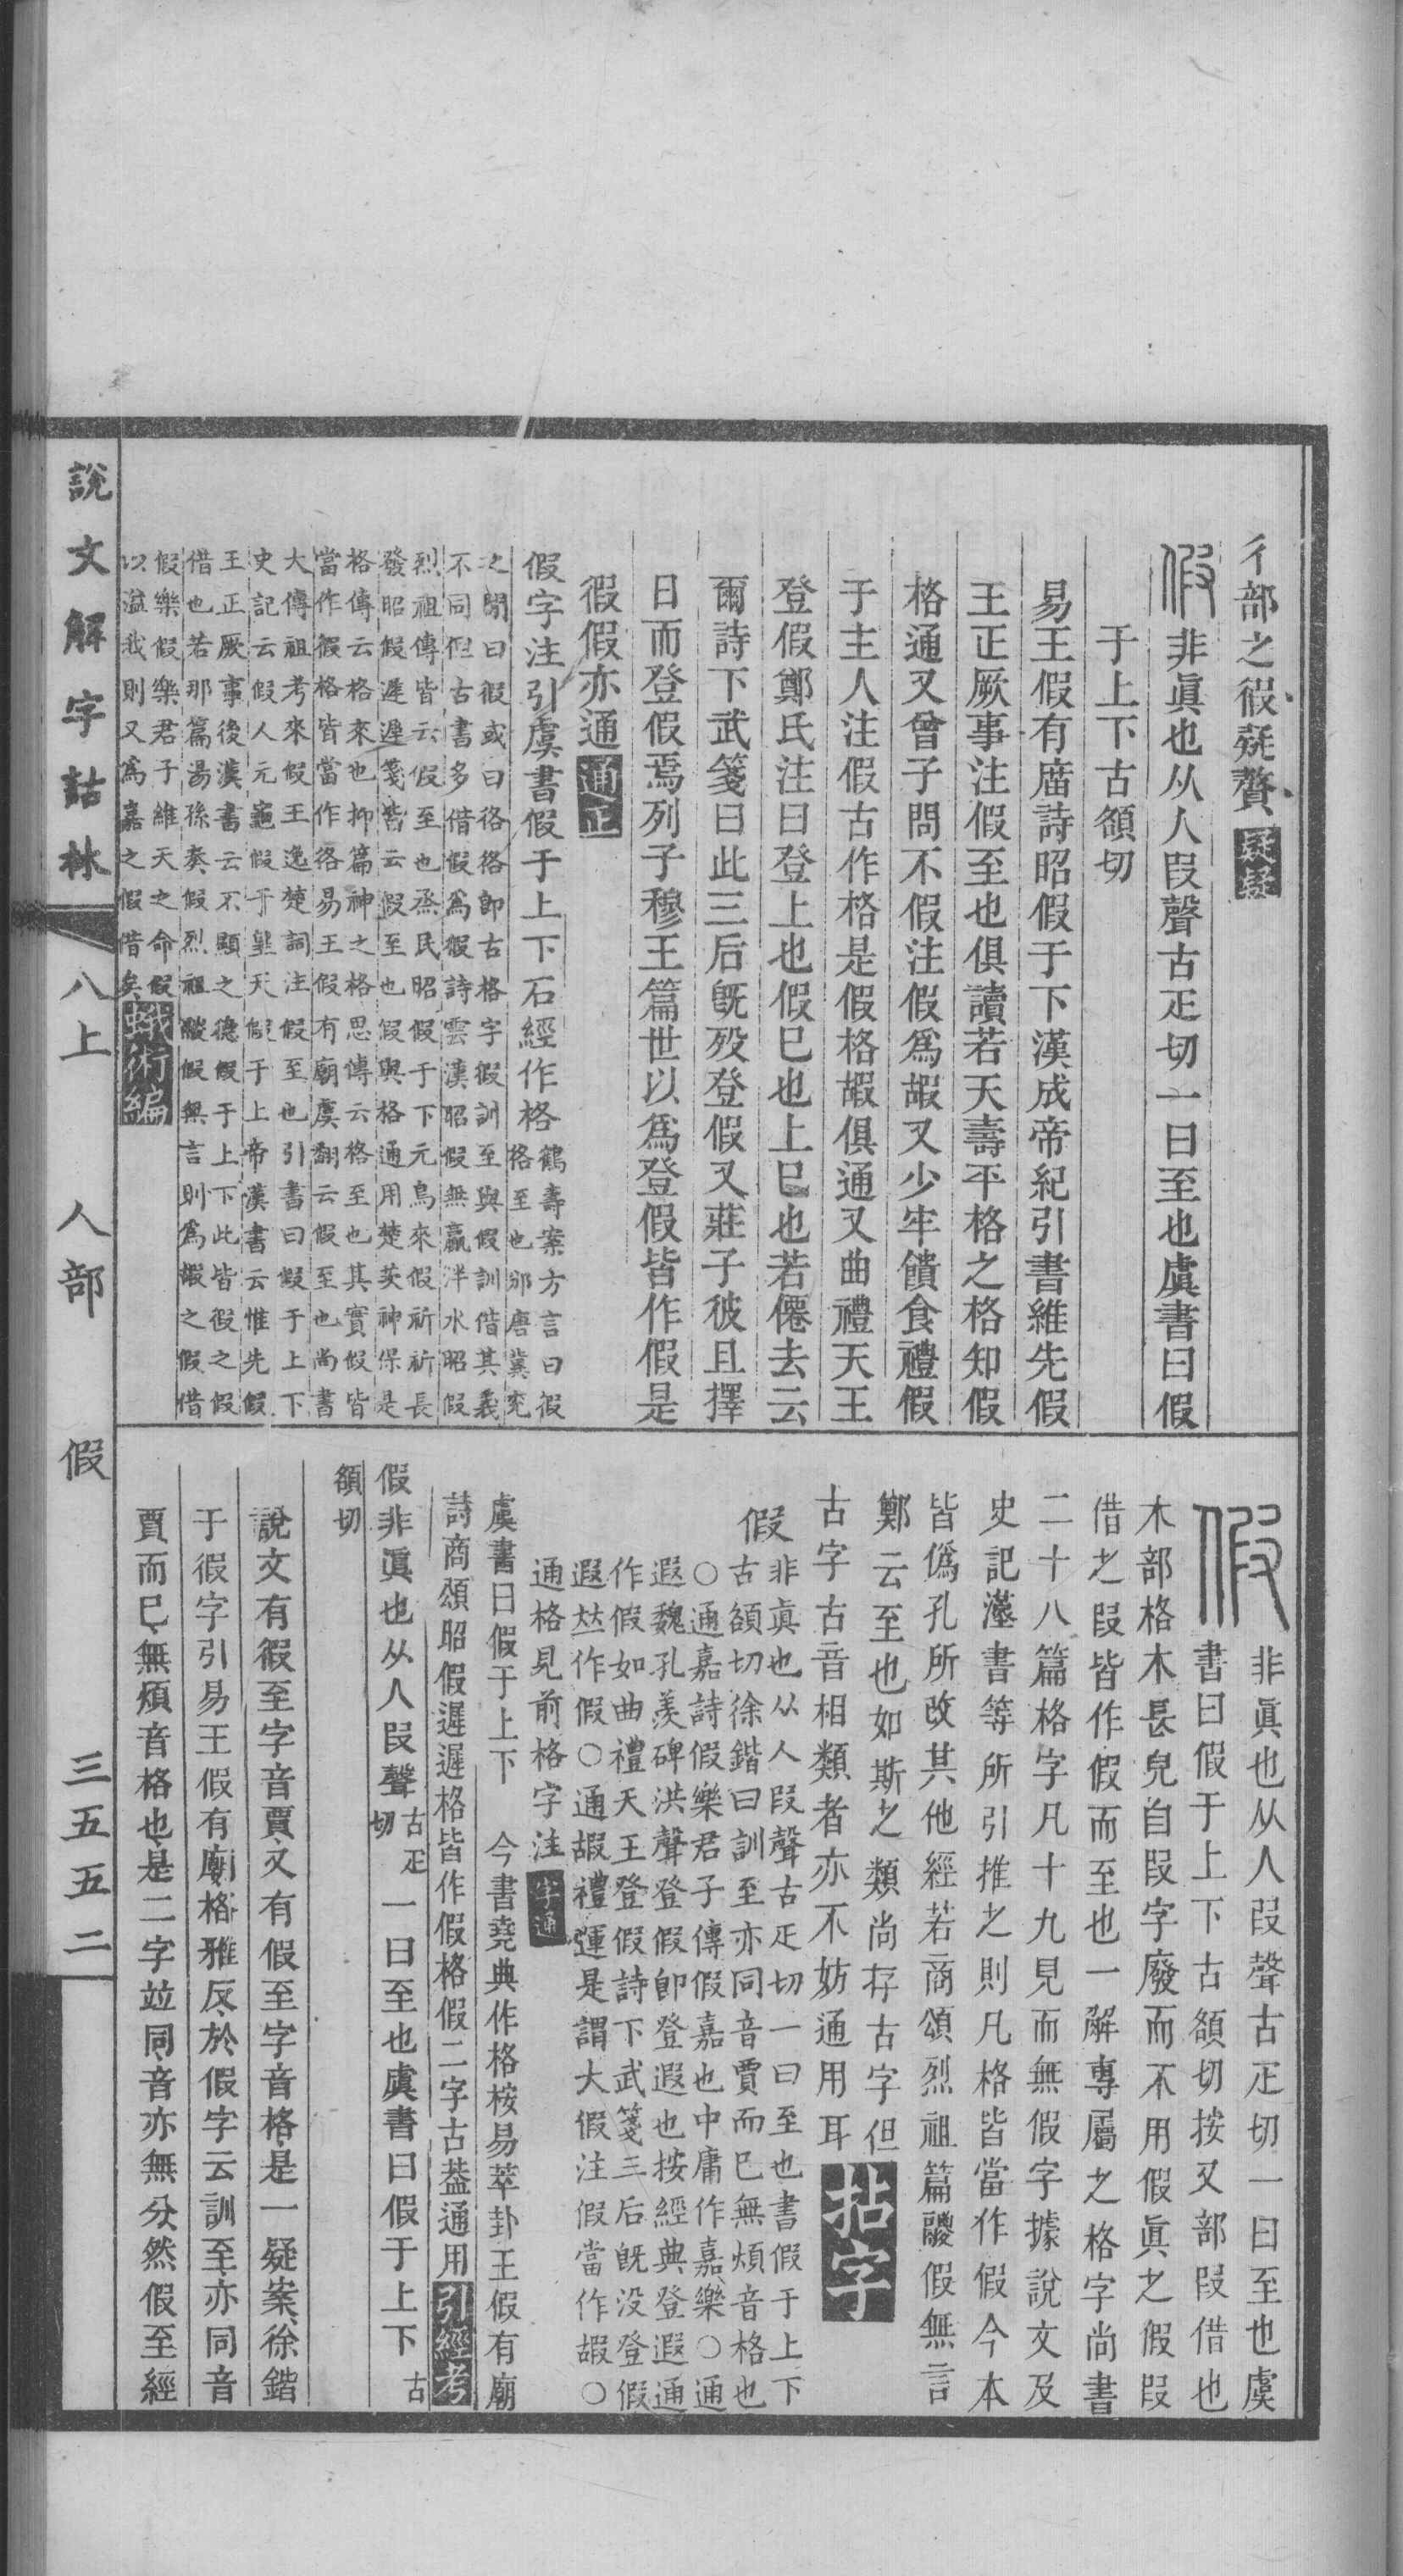 彳部之徦疑贅疑疑
假非眞也从人叚聲古疋切一曰至也虞書曰假
于上下古頟切
易王假有庿詩昭假于下漢成帝紀引書維先假
王正厥事注假至也俱讀若天壽平格之格知假
格通又曾子問不假注假爲嘏又少牢饋食禮假
于主人注假古作格是假格嘏俱通又曲禮天王
登假鄭氏注曰登上也假巳也上巳也若僊去云
爾詩下武箋曰此三后旣歿登假又莊子彼且擇
日而登假焉列子穆王篇世以爲登假皆作假是
徦假亦通通正
假字注引虞書假于上下石經作格鶴壽案方言曰假
格至也邠唐冀兖
之閒曰假或曰洛洛卽古格字假訓至與假訓借其義
不同但古書多借假爲徦詩雲漢昭假無贏泮水昭假
烈祖傳皆云假至也烝民昭假于下元鳥來假祈祈長
發昭假遲遲箋皆云假至也假與格通用楚茨神保是
格傳云格來也抑篇神之格思傳云格至也其實假皆
當作徦格皆當作洛易王假有廟虞翻云假至也尚書
大傳祖考來假王逸楚詞注假至也引書曰假于上下
史記云假人元龜假于皇天假于上帝漢書云惟先假
王正厥事後漢書云不顯之德假于上下此皆徦之假
借也若那篇湯孫奏假烈祖鬷假無言則爲嘏之假借
假樂假樂君子維天之命假
以溢我則又爲嘉之假借矣蛾術編
假非眞也从人叚聲古疋切一曰至也虞
書曰假于上下古頟切按又部叚借也
木部格木長皃自叚字廢而不用假眞之假叚
借之叚皆作假而至也一解專屬之格字尚書
二十八篇格字凡十九見而無假字據說文及
史記漢書等所引推之則凡格皆當作假今本
皆僞孔所改其他經若商頌烈祖篇鬷假無言
鄭云至也如斯之類尚存古字但
古字古音相類者亦不妨通用耳拈字
假非眞也从人叚聲古疋切一曰至也書假于上下
古頟切徐鍇曰訓至亦同音賈而巳無煩音格也
○通嘉詩假樂君子傳假嘉也中庸作嘉樂○通
遐魏孔羨碑洪聲登假卽登遐也按經典登遐通
作假如曲禮天王登假詩下武箋三后旣没登假
遐𠀤作假○通嘏禮運是謂大假注假當作嘏○
通格見前格字注字通
虞書曰假于上下　今書堯典作格桉易萃卦王假有廟
詩商頌昭假遲遲格皆作假格假二字古葢通用引經考
假非眞也从人叚聲古疋
切一曰至也虞書曰假于上下古
頟切
說文有徦至字音賈又有假至字音格是一疑案徐鍇
于徦字引易王假有廟格雅反於假字云訓至亦同音
賈而巳無煩音格也是二字竝同音亦無分然假至經
說文解字詁林　八上　人部　假　三五五二